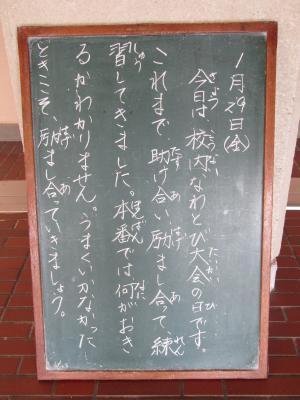 1月29日(金)
今日は校内なわとび大会の日です。
これまで、助け合い励まし合って練
習してきました。本番では何がおき
るかわかりません。うまくいかなかった
ときこそ、励まし合っていきましょう。